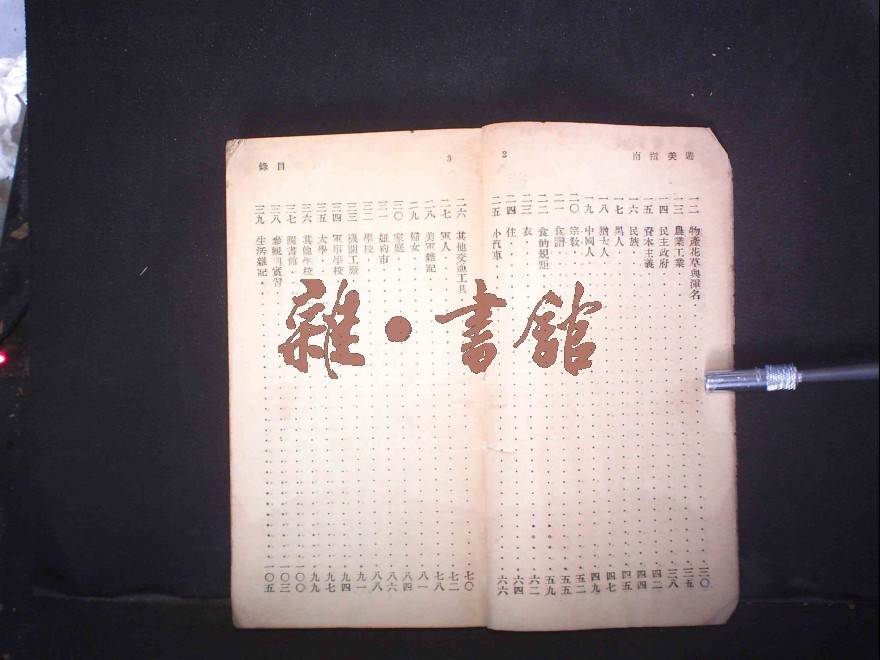 遊美指南
2
一二 物產花草與渾名 三〇
一三 農業工業 三五
一四 民主政府 三八
一五 資本主義 四二
一六 民族 四四
一七 黑人 四五
一八 猶太人 四七
一九 中國人 四九
二〇 宗教 五二
二一 食譜 五五
二二 食的規矩 五九
二三 衣 六二
二四 住 六四
二五 小汽車 六六
目錄
3
二六 其他交通工具 七〇
二七 軍人 七二
二八 美軍雜記 七八
二九 婦女 八一
三〇 家庭 八四
三一 紐約市 八六
三二 學校 八八
三三 機關工廠 九一
三四 軍事學校 九四
三五 大學 九七
三六 其他學校 九九
三七 圖書館 一〇〇
三八 參觀與實習 一〇三
三九 生活雜記 一〇五
雜·書館